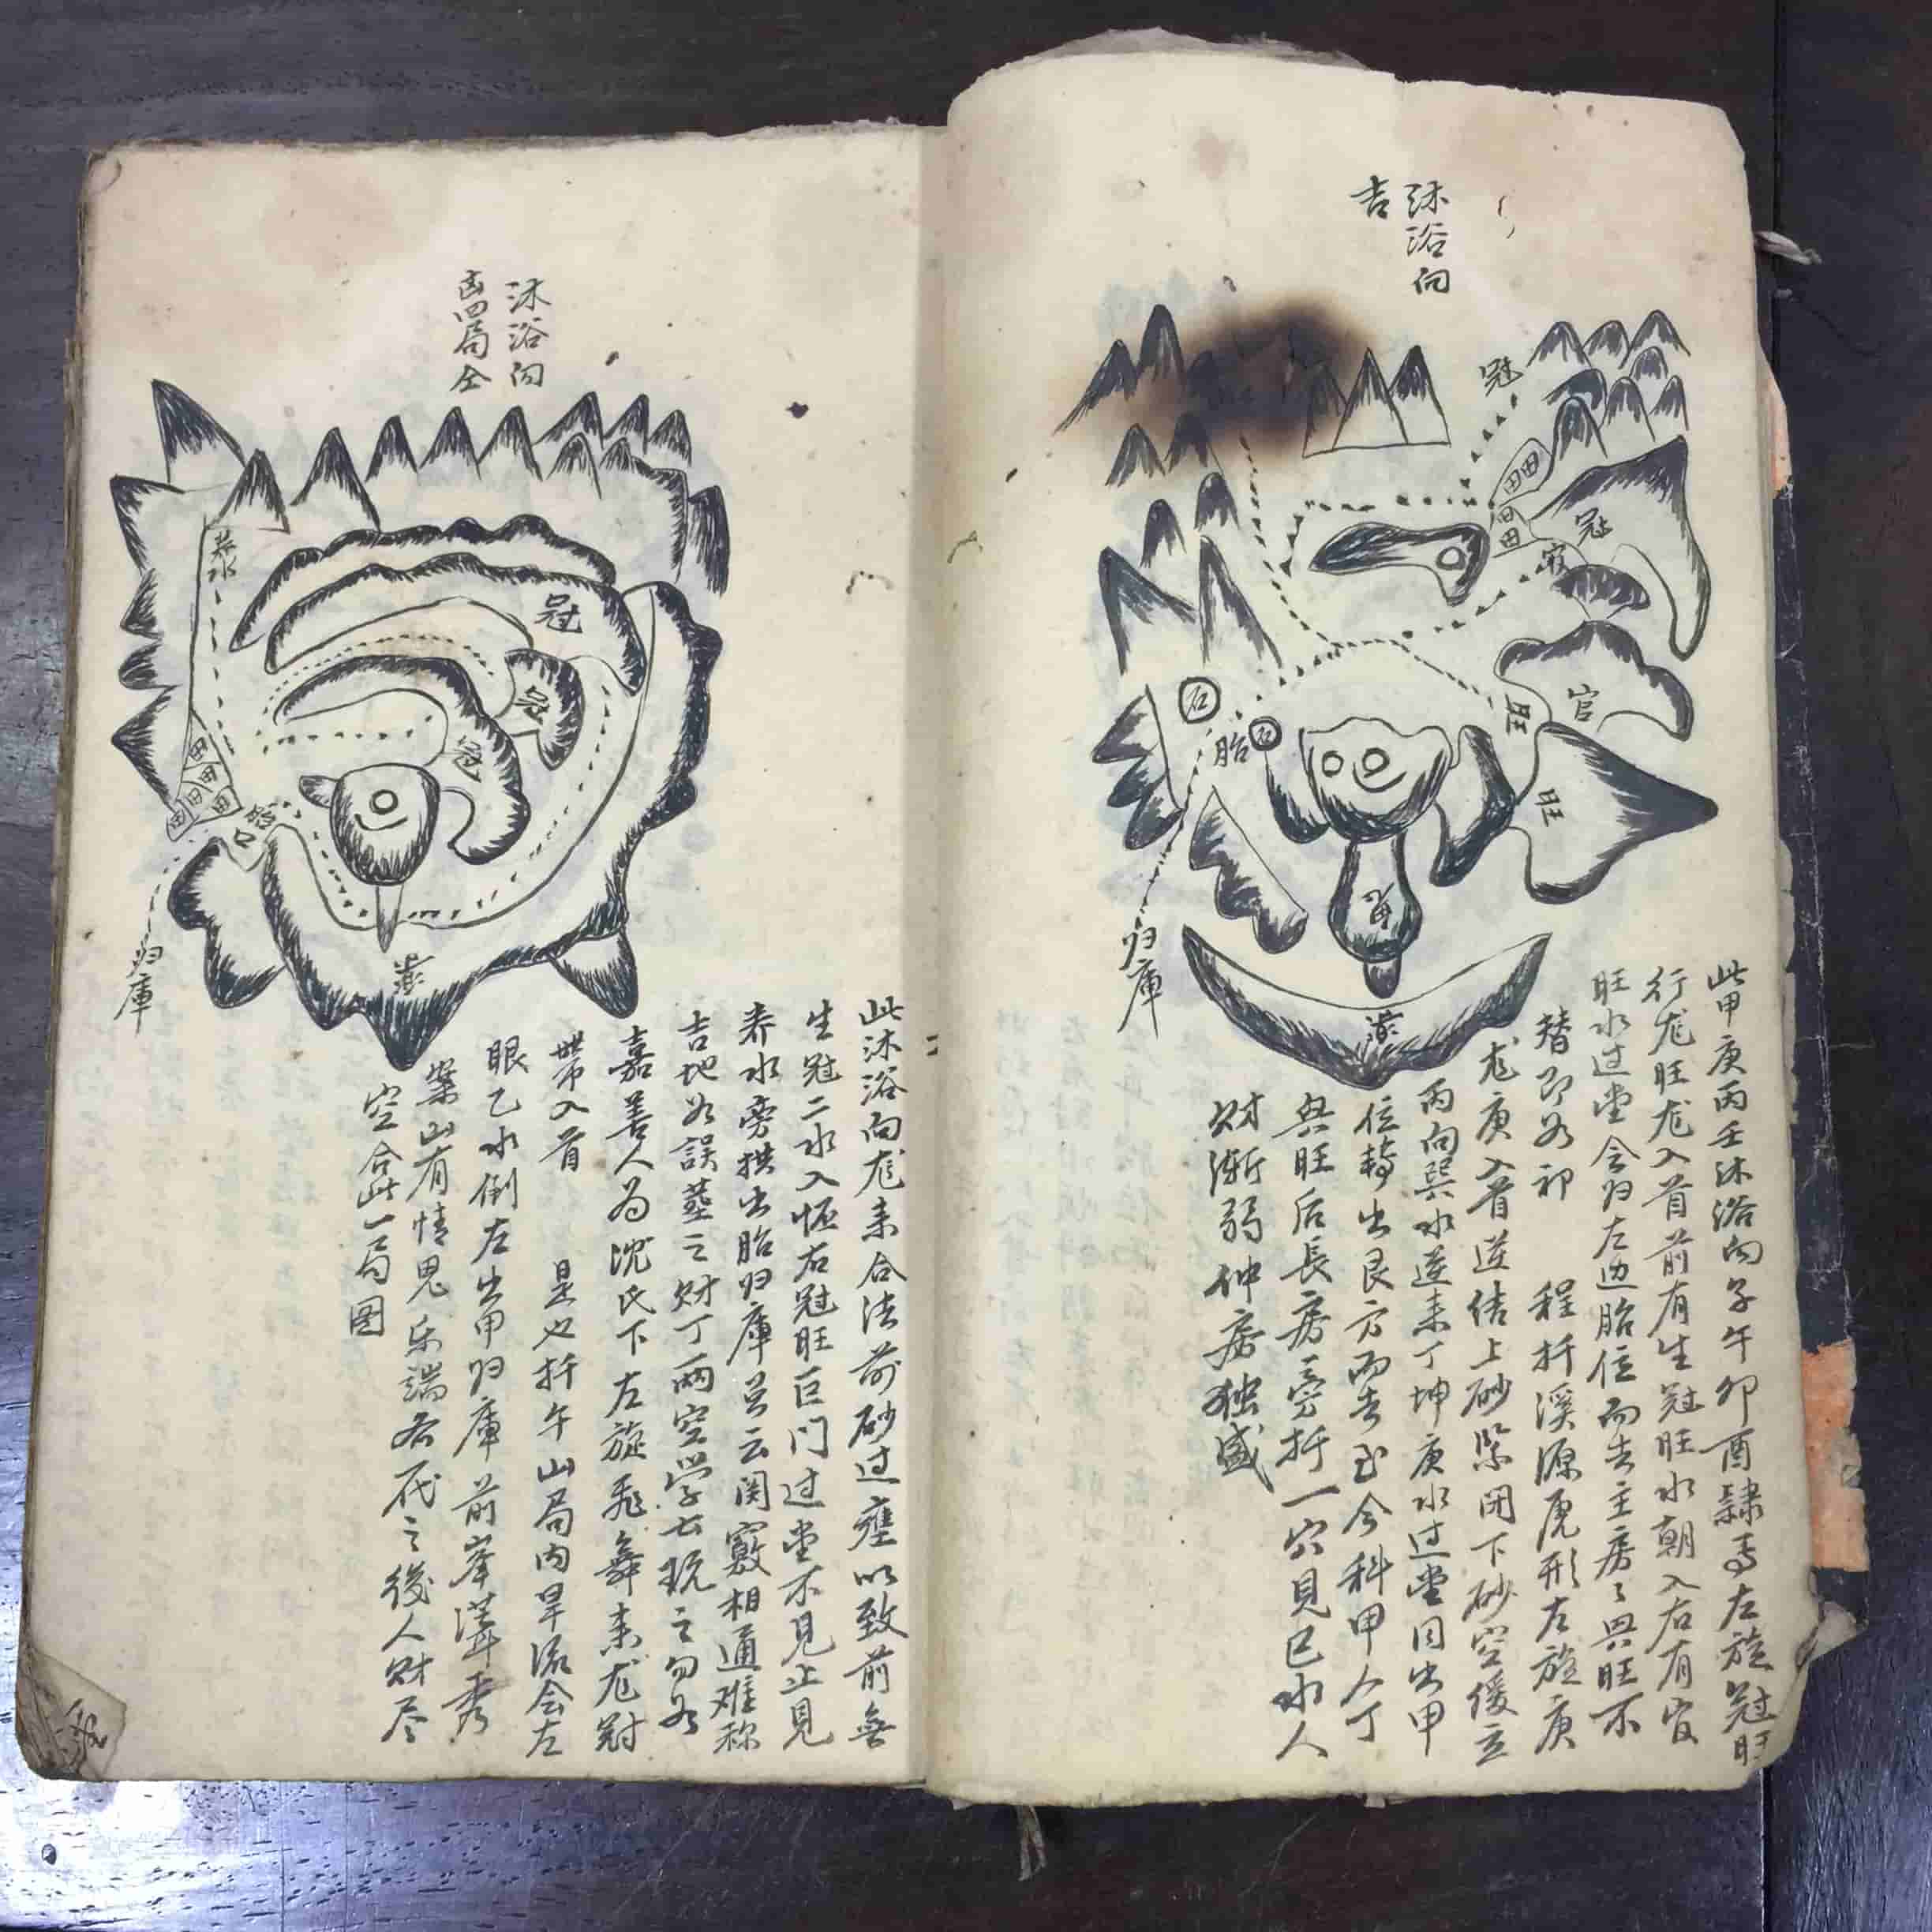 沐浴向
吉
冠
冠
官
旺
旺
胎
石
石
田
田
田
田
归庫
此甲庚丙壬沐浴向子午卯酉隸焉左旋冠旺
行龙旺龙入首前有生冠旺水朝入右有官
旺水过堂会归左边胎位而去主房々興旺不
替即如祁 程扦溪源虎形左旋庚
龙庚入首逆结上砂紧闭下砂空缓立
丙向巽水逆来丁坤庚水过堂同出甲
位转出艮方而去至今科甲人丁
興旺后長房旁扦一穴見巳水人
财漸弱仲房独盛
沐浴向
凶四局全
养水
冠
田
田
田
田
田
胎
口
归庫
此沐浴向龙来合法前砂过壅以致前無
生冠二水入怀右冠旺巨门过堂不見止見
养水旁拱出胎归庫总云関竅相通难称
吉地如誤葬之财丁两空学士玩之勿如
嘉善人为沈氏下左旋飛舞来龙冠
带入首 是也扦午山局内旱流会左
眼乙水倒左出甲归庫前峯清秀
案山有情思乐端名花之後人财尽
空合此一局圖